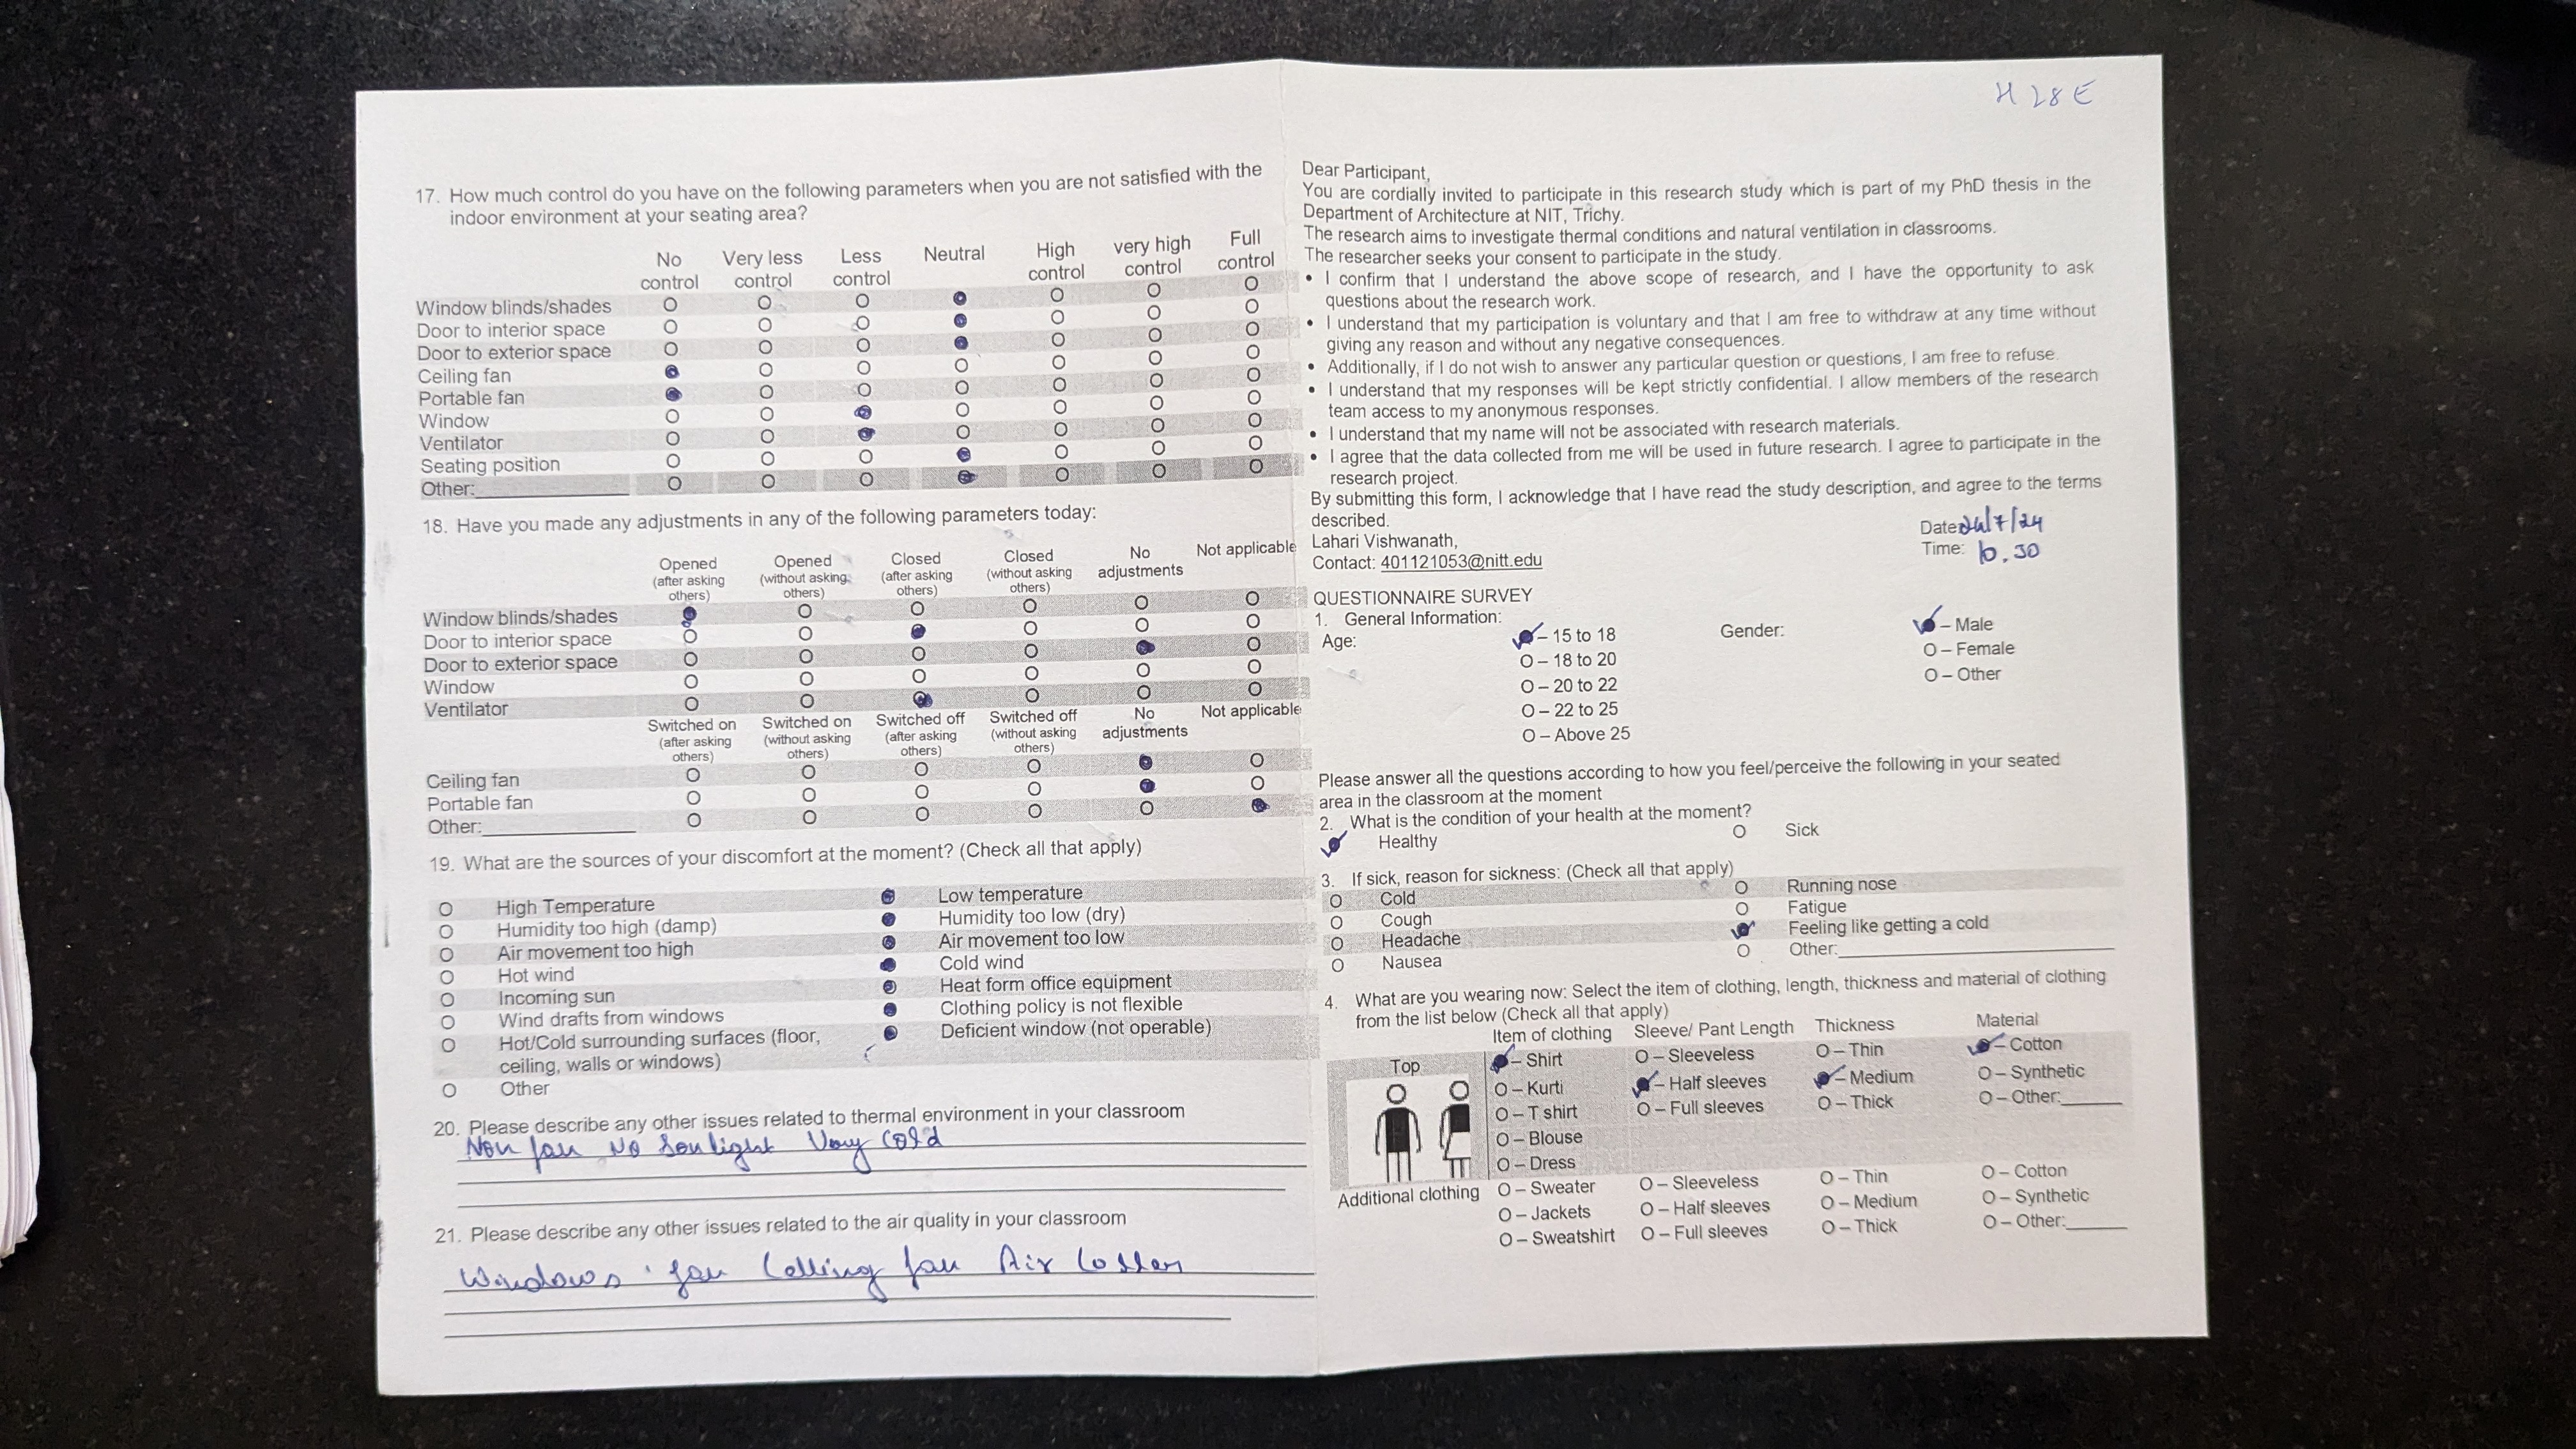 17. How much control do you have on the following parameters when you are not satisfied with the
indoor environment at your seating area?
No control Very less control Less control Neutral High control very high control Full control
Window blinds/shades
Door to interior space
Door to exterior space
Ceiling fan
Portable fan
Window
Ventilator
Seating position
Other:
18. Have you made any adjustments in any of the following parameters today:
Opened (after asking others) Opened (without asking others) Closed (after asking others) Closed (without asking others) No adjustments Not applicable
Window blinds/shades
Door to interior space
Door to exterior space
Window
Ventilator
Switched on (after asking others) Switched on (without asking others) Switched off (after asking others) Switched off (without asking others) No adjustments Not applicable
Ceiling fan
Portable fan
Other:
19. What are the sources of your discomfort at the moment? (Check all that apply)
High Temperature Low temperature
Humidity too high (damp) Humidity too low (dry)
Air movement too high Air movement too low
Hot wind Cold wind
Incoming sun Heat form office equipment
Wind drafts from windows Clothing policy is not flexible
Hot/Cold surrounding surfaces (floor, Deficient window (not operable)
ceiling, walls or windows)
Other
20. Please describe any other issues related to thermal environment in your classroom
fan No Sunlight Very cold
21. Please describe any other issues related to the air quality in your classroom
Windows fan Celling fan Air
H 28 E
Dear Participant,
You are cordially invited to participate in this research study which is part of my PhD thesis in the
Department of Architecture at NIT, Trichy.
The research aims to investigate thermal conditions and natural ventilation in classrooms.
The researcher seeks your consent to participate in the study.
• I confirm that I understand the above scope of research, and I have the opportunity to ask
questions about the research work.
• I understand that my participation is voluntary and that I am free to withdraw at any time without
giving any reason and without any negative consequences.
• Additionally, if I do not wish to answer any particular question or questions, I am free to refuse.
• I understand that my responses will be kept strictly confidential. I allow members of the research
team access to my anonymous responses.
• I understand that my name will not be associated with research materials.
• I agree that the data collected from me will be used in future research. I agree to participate in the
research project.
By submitting this form, I acknowledge that I have read the study description, and agree to the terms
described.
Lahari Vishwanath,
Contact: 401121053@nitt.edu
Date: /7/24
Time: 10.30
QUESTIONNAIRE SURVEY
1. General Information:
Age: – 15 to 18 Gender: – Male
O – 18 to 20 O – Female
O – 20 to 22 O – Other
O – 22 to 25
O – Above 25
Please answer all the questions according to how you feel/perceive the following in your seated
area in the classroom at the moment
2. What is the condition of your health at the moment?
Healthy Sick
3. If sick, reason for sickness: (Check all that apply)
Cold Running nose
Cough Fatigue
Headache Feeling like getting a cold
Nausea Other:
4. What are you wearing now: Select the item of clothing, length, thickness and material of clothing
from the list below (Check all that apply)
Item of clothing Sleeve/ Pant Length Thickness Material
Top – Shirt O – Sleeveless O – Thin – Cotton
O – Kurti – Half sleeves – Medium O – Synthetic
O – T shirt O – Full sleeves O – Thick O – Other:
O – Blouse
O – Dress
Additional clothing O – Sweater O – Sleeveless O – Thin O – Cotton
O – Jackets O – Half sleeves O – Medium O – Synthetic
O – Sweatshirt O – Full sleeves O – Thick O – Other: